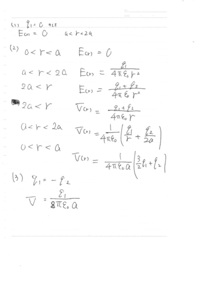 (1) q₁=0
E(r) = 0   a<r<2a
(2) 0<r<a   E(r) = 0
a<r<2a   E(r) = q₁/4πε₀r²
2a<r   E(r) = (q₁+q₂)/4πε₀r²
2a<r   V(r) = (q₁+q₂)/4πε₀r
a<r<2a   V(r) = 1/4πε₀ (q₁/r + q₂/2a)
0<r<a
V(r) = 1/4πε₀a (3/2 q₁ + q₂)
(3) q₁ = -q₂
V = q₁/8πε₀a